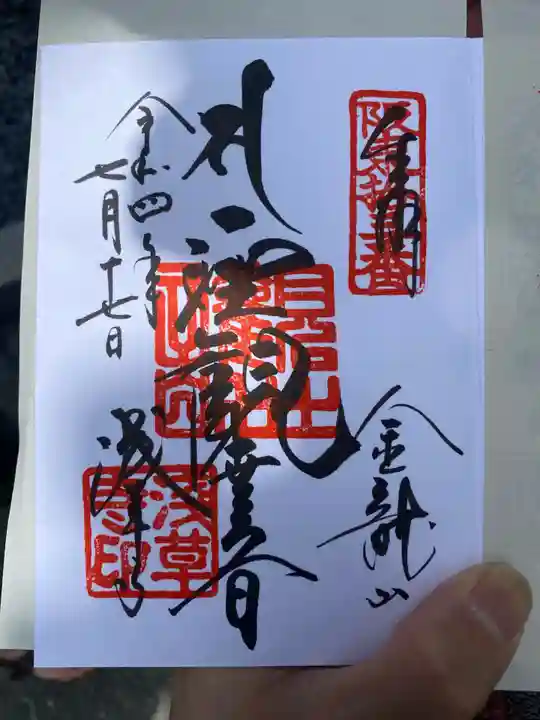 奉拝
坂東拾三番
金龍山
聖観世音
浅草寺
浅草寺印
令和四年
七月十七日